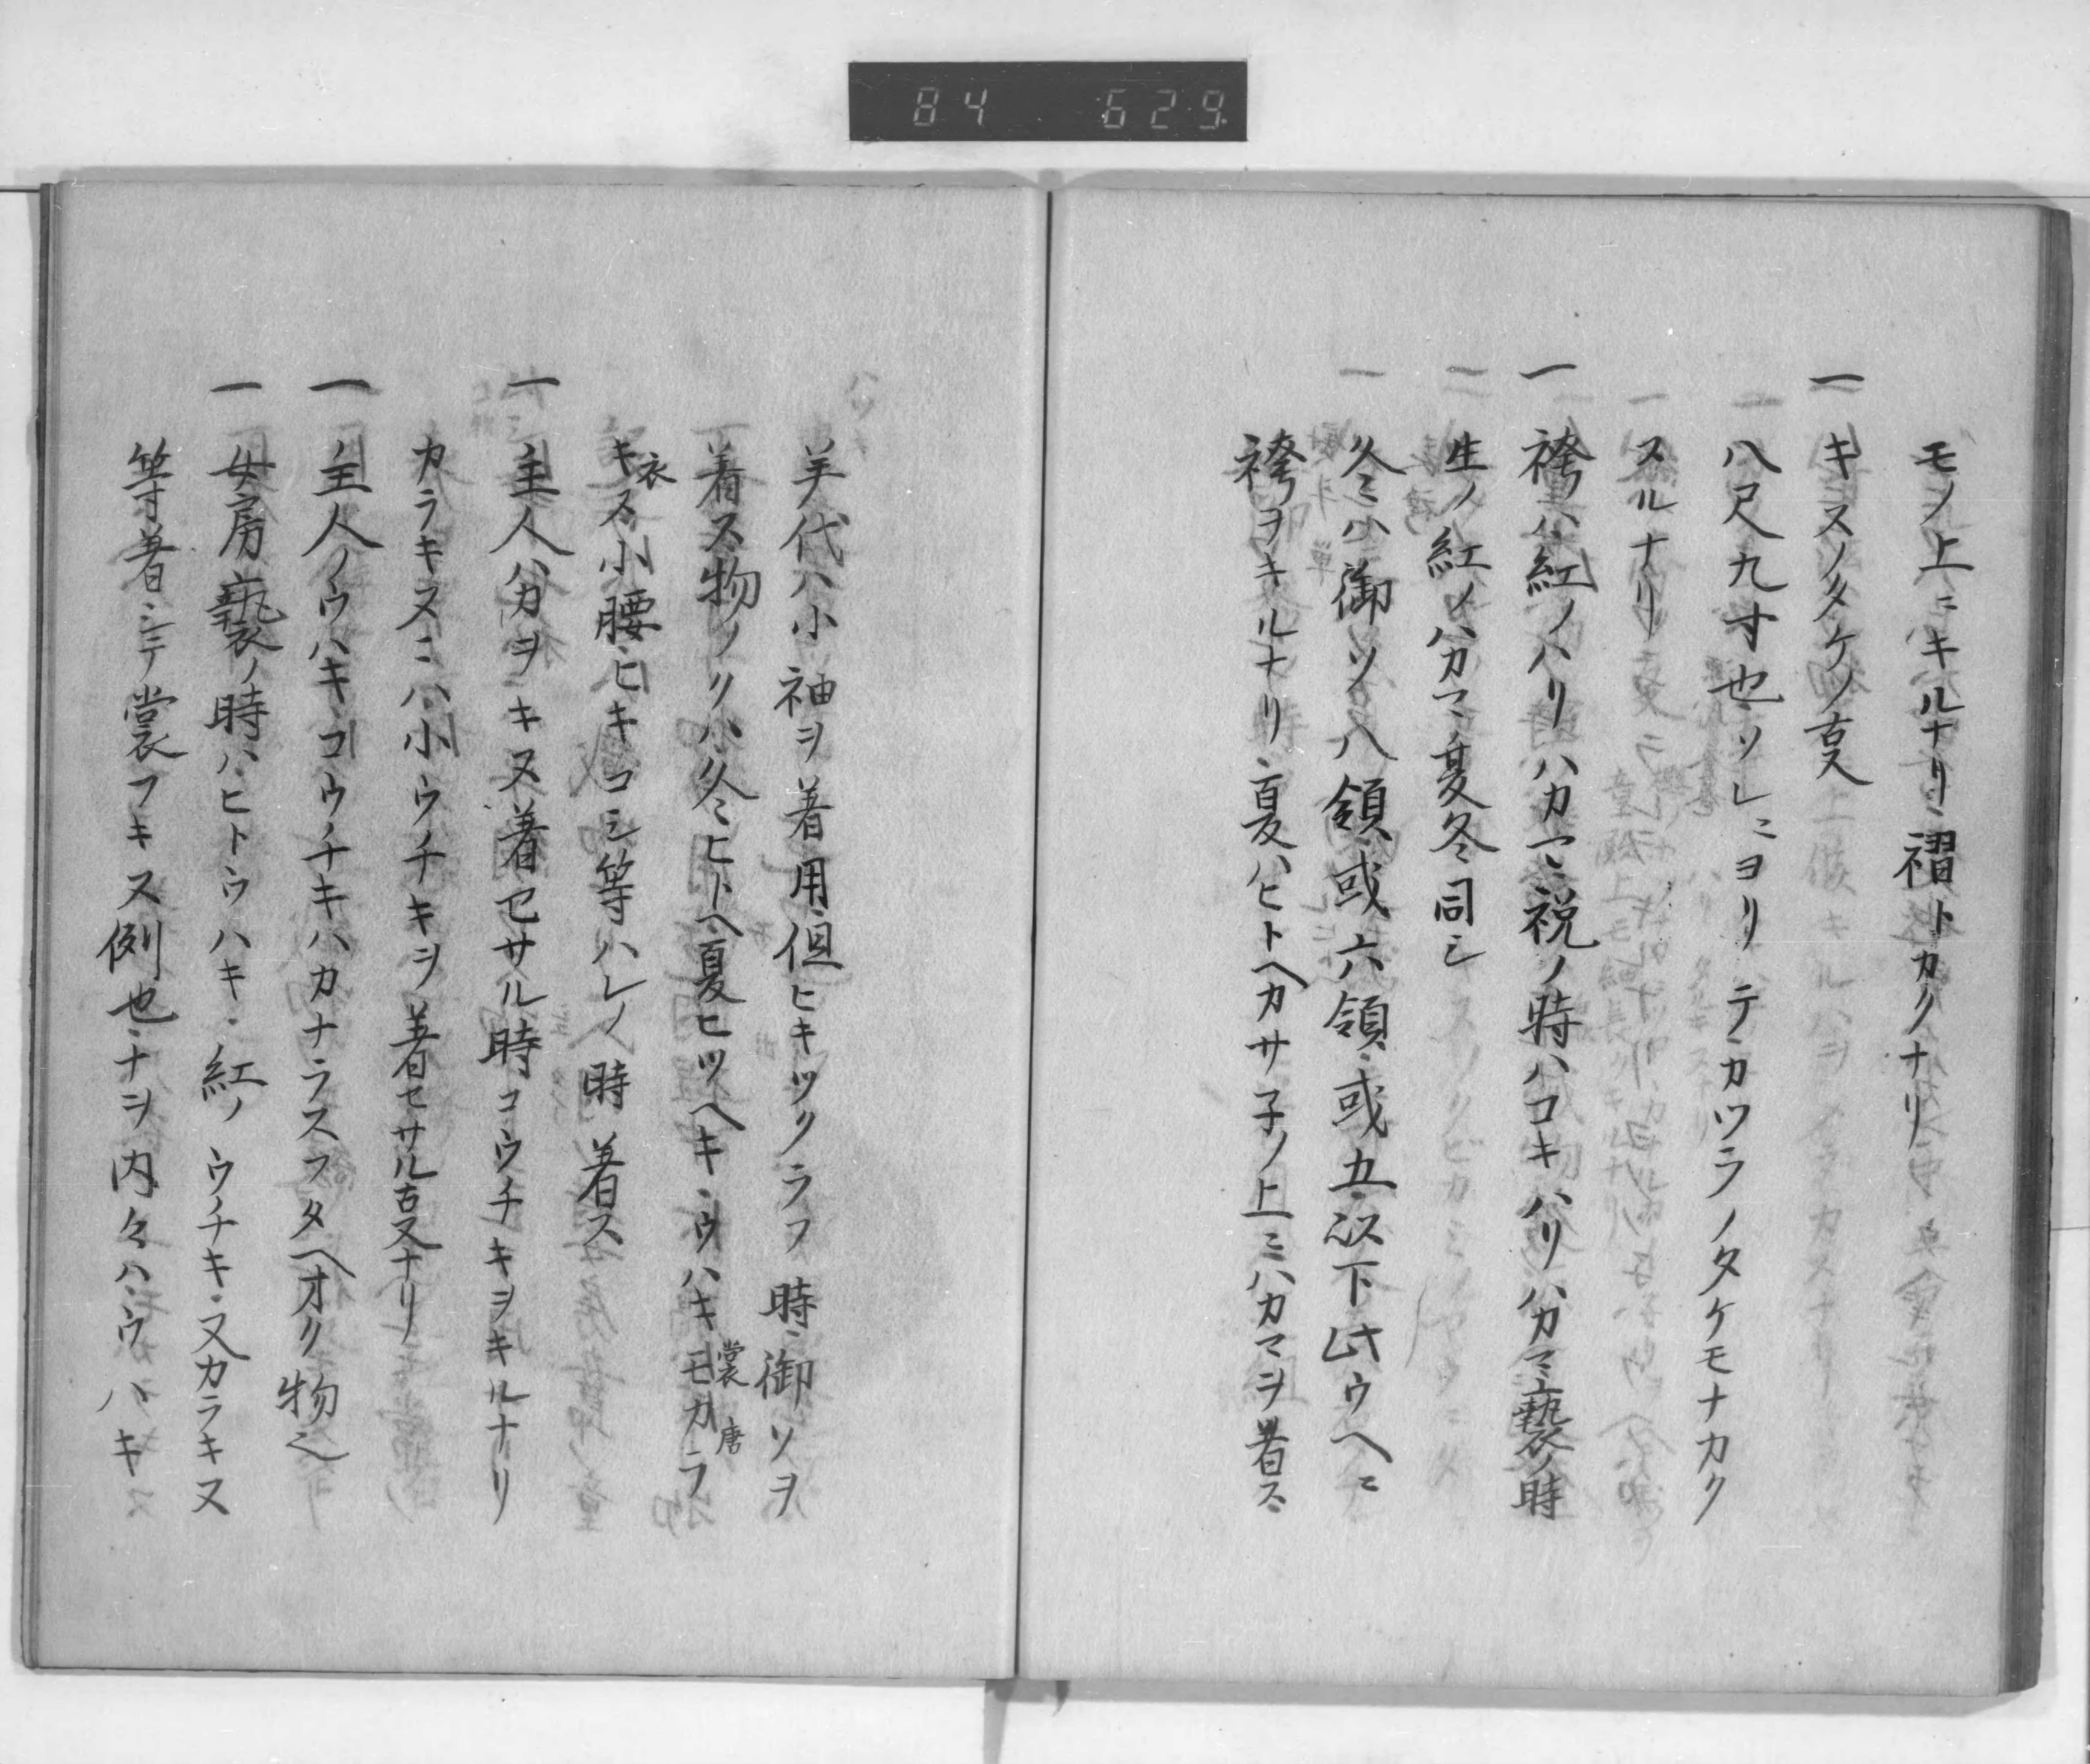 84 629
モノ上ニキルナリ褶トカクナリ
一キヌノタケノ叓
八尺九寸也ソレニヨリテカツラノタケモナカク
スルナリ
一袴ハ紅ノハリハカマ祝ノ時ハコキハリハカマ褻ノ時
生ノ紅ノハカマ夏冬同シ
冬ハ御ソ八領或六領或五以下此ウヘニ
袴ヲキルナリ夏ハヒトヘカサ子ノ上ニハカマヲ着ス
羊代ハ小袖ヲ着用但ヒキツクラフ時御ソヲ
着ス物ノクハ冬ヒトヘ夏ヒツヘキウハキモ裳カラ唐
キ衣ヌ小腰ヒキコシ等ハレノ時着ス
一主人ハカヲニキヌ着セサル時コウチキヲキルナリ
カラキヌニハ小ウチキヲ着セサル叓ナリ
一主人ノウハキコウチキハカナラスフタヘオリ物也
一女房褻ノ時ハヒトウハキ紅ノウチキ又カラキヌ
等着シテ裳フキス例也ナヲ内々ハウハキ